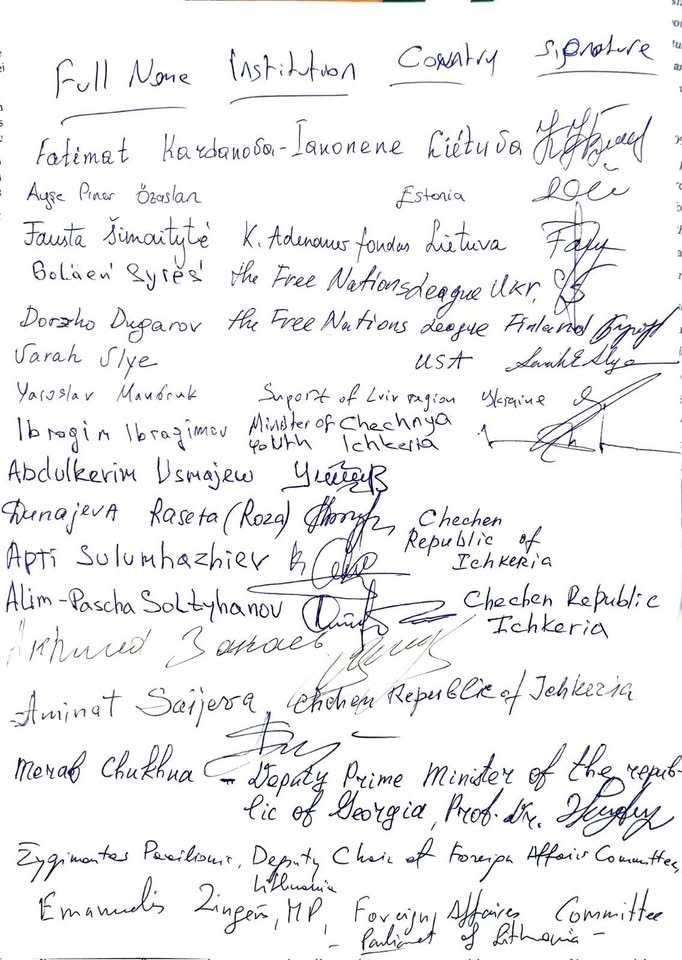 Full Name Institution Country Signature
Fatimat Kardanova-Ianonene Lietuva
Ayşe Pınar Özaslan Estonia
Fausta Šimaitytė K. Adenauer fondas Lietuva
the Free Nations League Ukr.
Dorzho Dugarov the Free Nations League Finland
Sarah Slye USA
Yaroslav Suport of Lviv region Ukraine
Ibragim Ibragimov Minister of Chechnya
youth Ichkeria
Abdulkerim Usmajew
Dunajeva Raseta (Roza) Chechen
Republic of
Apti Sulumhazhiev Ichkeria
Alim-Pascha Soltyhanov Chechen Republic
Ichkeria
Aminat Saijeva, Chechen Republic of Ichkeria
Merab Chukhua - Deputy Prime Minister of the repub-
lic of Georgia, Prof. Dr.
Deputy Chair of Foreign Affairs Committee,
Lithuania
Emanuelis Zingeris, MP, Foreign Affairs Committee
- Parliament of Lithuania -